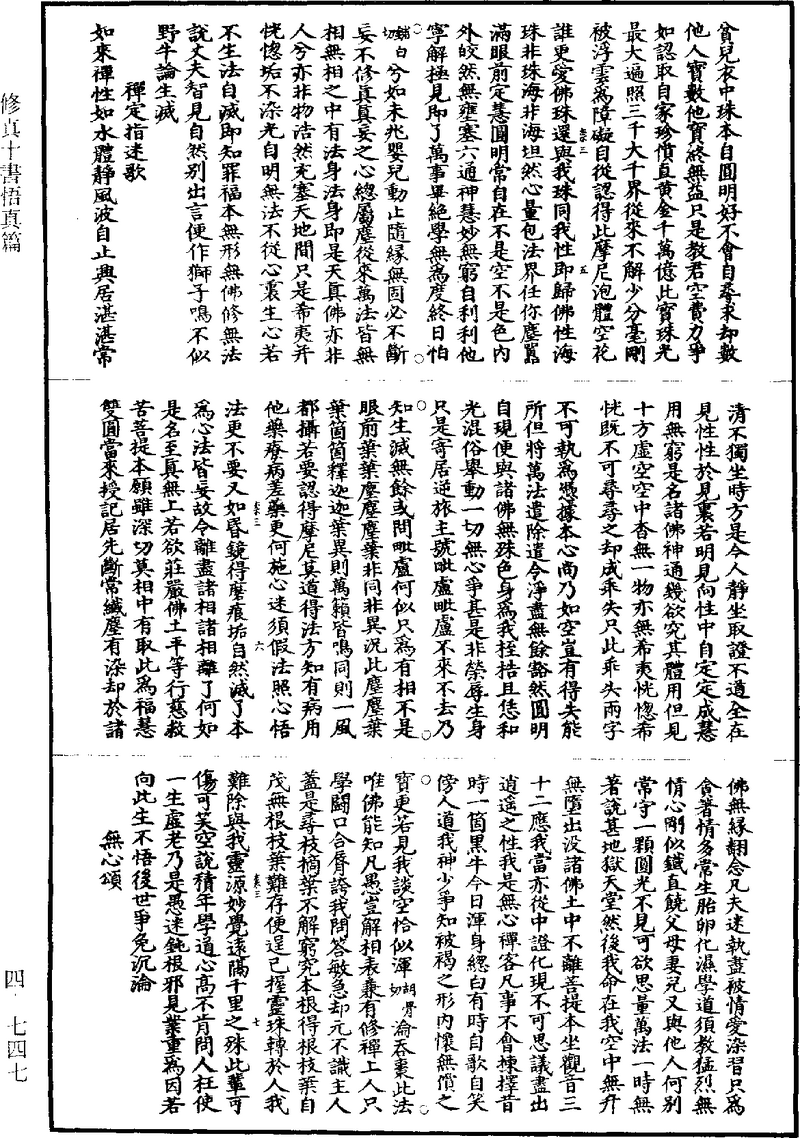 貧兒衣中珠本自圓明好不會自尋求却數
他人寶數他寶終無益只是教君空費力爭
如認取自家珍價直黃金千萬億此寶珠光
最大遍照三千大千界從來不解少分毫剛
被浮雲爲障礙自從認得此摩尼泡體空花
誰更愛佛珠還與我珠同我性即歸佛性海
珠非珠海非海坦然心量包法界任你塵囂
滿眼前定慧圓明常自在不是空不是色內
外皎然無壅塞六通神慧妙無窮自利利他
寧解極見即了萬事畢絕學無爲度終日怕
兮如未兆嬰兒動止隨緣無固必不斷
妄不修真真妄之心總屬塵從來萬法皆無
相無相之中有法身法身即是天真佛亦非
人兮亦非物浩然充塞天地間只是希夷并
恍惚垢不染光自明無法不從心裏生心若
不生法自滅即知罪福本無形無佛修無法
說丈夫智見自然別出言便作獅子鳴不似
野牛論生滅
禪定指迷歌
如來禪性如水體靜風波自止興居湛湛常
清不獨坐時方是今人靜坐取證不道全在
見性性於見裏若明見向性中自定定成慧
用無窮是名諸佛神通幾欲究其體用但見
十方虛空空中杳無一物亦無希夷恍惚希
恍既不可尋尋之却成乖失只此乖失兩字
不可執爲憑據本心尚乃如空豈有得失能
所但將萬法遣除遣令淨盡無餘豁然圓明
自現便與諸佛無殊色身爲我桎梏且恁和
光混俗舉動一切無心爭甚是非榮辱生身
只是寄居逆旅主號毗盧毗盧不來不去乃
知生滅無餘或問毗盧何似只爲有相不是
眼前葉葉塵塵塵葉非同非異況此塵塵葉
葉箇箇釋迦迦葉異則萬籟皆鳴同則一風
都攝若要認得摩尼莫道得法方知有病用
他藥療病差藥更何施心迷須假法照心悟
法更不要又如昏鏡得磨痕垢自然滅了本
爲心法皆妄故令離盡諸相諸相離了何如
是名至真無上若欲莊嚴佛土平等行慈救
苦菩提本願雖深切莫相中有取此爲福慧
雙圓當來授記居先斷常纖塵有染却於諸
佛無緣翻念凡夫迷執盡被情愛染習只爲
貪著情多常生胎卵化濕學道須教猛烈無
情心剛似鐵直饒父母妻兒又與他人何別
常守一顆圓光不見可欲思量萬法一時無
著說甚地獄天堂然後我命在我空中無升
無墮出没諸佛土中不離菩提本坐觀音三
十二應我當亦從中證化現不可思議盡出
逍遙之性我是無心禪客凡事不會揀擇昔
時一箇黑牛今日渾身總白有時自歌自笑
傍人道我神少爭知被褐之形內懷無價之
寶更若見我談空恰似渾胡骨切淪吞棗此法
唯佛能知凡愚豈解相表兼有修禪上人只
學鬬口合脣誇我問答敏急却元不識主人
蓋是尋枝摘葉不解窮究本根得根枝葉自
茂無根枝葉難存便逞已握靈珠轉於人我
難除與我靈源妙覺遠隔千里之殊此輩可
傷可笑空說積年學道心高不肯問人枉使
一生虛老乃是愚迷鈍根邪見業重爲因若
向此生不悟後世爭免沉淪
無心頌
修真十書悟真篇
四·七四七